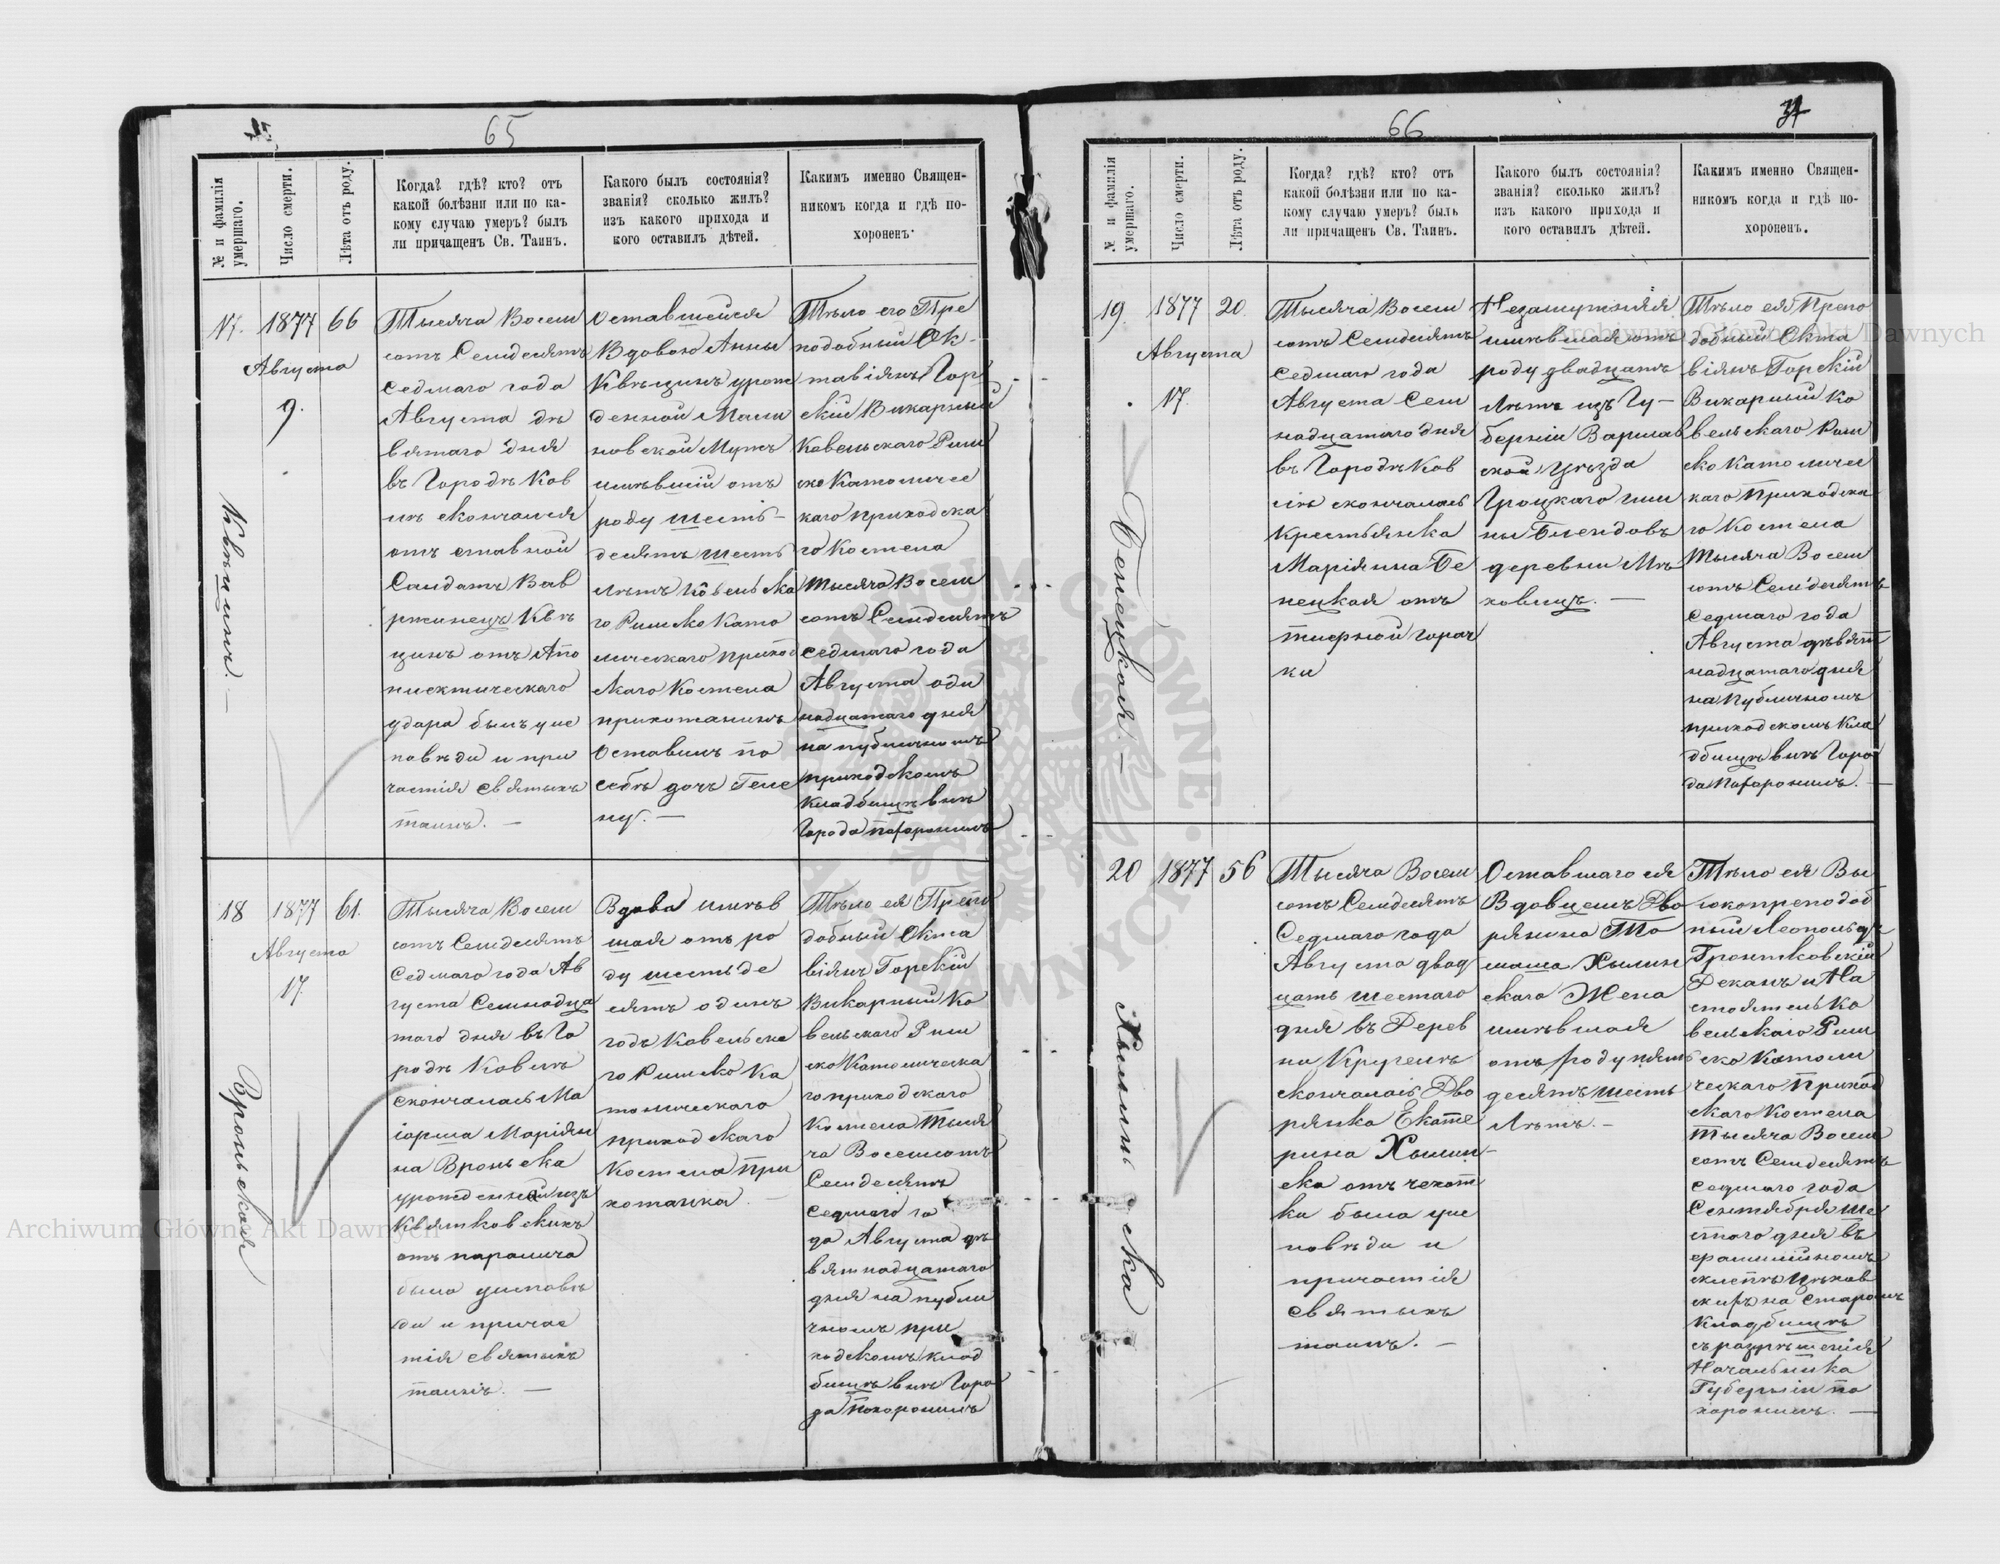 65
№ и фамилія
умершаго.
Число смерти.
Лѣта отъ роду.
Когда? гдѣ? кто? отъ
какой болѣзни или по ка-
кому случаю умеръ? былъ
ли причащенъ Св. Таинъ.
Какого былъ состоянія?
званія? сколько жилъ?
изъ какого прихода и
кого оставилъ дѣтей.
Какимъ именно Священ-
никомъ когда и гдѣ по-
хороненъ.
17.
1877
Августа
9.
66
Тысяча Восем
сотъ Семдесятъ
Седмаго года
Августа де
вятаго дня
въ Городѣ Ков
лѣ скончался
отъ ставной
Салдатъ Вав
ржинецъ Квѣ
цинъ отъ Апо
плектическаго
удара былъ уис
повѣди и при
частія Святыхъ
таинъ. —
Оставшейся
Вдовою Анны
Квѣцинъ урож
денной Мали
новской Мужъ
имѣвшій отъ
роду шесть-
десятъ шесть
лѣтъ Ковельска
го Римско Като
лическаго приход
скаго Костела
прихожанинъ
Оставилъ по
себѣ дочь Геле
ну. —
Тѣло его Пре
подобный Ок-
тавіянъ Гор
скій Викарный
Ковельскаго Рим
ско Католичес
каго приходска
го Костела
тысяча Восем
сотъ Семдесятъ
седмаго года
Августа оди
надцатаго дня
на публичномъ
приходскомъ
кладбищѣ внѣ
Города похоронилъ
18
1877
Августа
17.
61.
Тысяча Восем
сотъ Семдесятъ
Седмаго года Ав
густа Семнадца
таго дня въ Го
родѣ Ковлѣ
скончалась Ма
іорша Маріян
на Вронъска
урожденная изъ
Квятковскихъ
отъ паралича
была уисповѣ
ди и причас
тія святыхъ
таинъ. —
Вдова имѣв
шая отъ ро
ду шестьде
сятъ одинъ
годъ Ковельска
го Римско Ка
толическаго
приходскаго
Костела при
хожанка. —
Тѣло ея Препо
добный Окта
віянъ Горскій
Викарный Ко
вельскаго Рим
ско Католическа
го приходскаго
Костела Тыся
ча Восемсотъ
Семдесятъ
Седмаго го
да Августа де
вятнадцатаго
дня на публи
чномъ при
ходскомъ клад
бищѣ внѣ Горо
да похоронилъ
Квѣцинъ. —
Вронъская
66
№ и фамилія
умершаго.
Число смерти.
Лѣта отъ роду.
Когда? гдѣ? кто? отъ
какой болѣзни или по ка-
кому случаю умеръ? былъ
ли причащенъ Св. Таинъ.
Какого былъ состоянія?
званія? сколько жилъ?
изъ какого прихода и
кого оставилъ дѣтей.
Какимъ именно Священ-
никомъ когда и гдѣ по-
хороненъ.
19.
1877
Августа
17.
20.
Тысяча Восем
сотъ Семдесятъ
Седмаго года
Августа Сем
надцатаго дня
въ Городѣ Ков
лѣ скончалась
Крестьянка
Маріянна Бе
нецкая отъ
тиерной горяч
ки
Незамужняя
имѣвшая отъ
роду двадцать
лѣтъ изъ Гу-
берніи Варшав
ской Уѣзда
Гроцкаго гми
ны Блендовъ
деревни Мѣ
ховицъ. —
Тѣло ея Препо
добный Окта
віянъ Горскій
Викарный Ко
вельскаго Рим
ско Католичес
каго Приходска
го Костела
Тысяча Восем
сотъ Семдесятъ
Седмаго года
Августа девят
надцатаго дня
на публичномъ
приходскомъ Кла
дбищѣ внѣ Горо
да похоронилъ. —
Бенецкая. —
20
1877
56
Тысяча Восем
сотъ Семдесятъ
Седмаго года
Августа двад
цать шестаго
дня въ Дерев
на Кругелъ
скончалась Дво
рянка Екате
рина Хылин-
ска отъ чехот
ка была уис
повѣди и
причастія
святыхъ
таинъ. —
Оставшагося
Вдовцемъ Дво
рянина То
маша Хылин
скаго Жена
имѣвшая
отъ роду пять
десятъ шесть
Лѣтъ. —
Тѣло ея Вы
сокопреподоб
ный Леопольдъ
Гронтковскій
Деканъ и На
стоятель Ко
вельскаго Рим
ско Католи
ческаго Приход
скаго Костела
Тысяча Восем
сотъ Семдесятъ
Седмаго года
Сентября ше
стого дня въ
фамилійномъ
склепѣ
на старомъ
Кладбищѣ
съ разрѣшенія
Начальника
Губерніи по
хоронилъ. —
Хылинъска
Archiwum Główne Akt Dawnych
Archiwum Główne Akt Dawnych